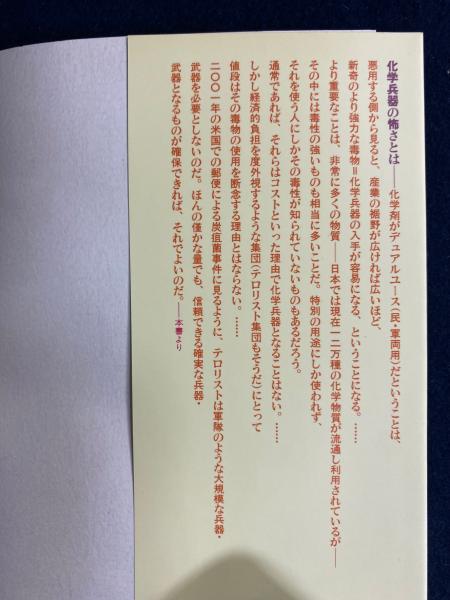 化学兵器の怖さとは――化学剤がデュアルユース（民・軍両用）だということは、
悪用する側から見ると、産業の裾野が広ければ広いほど、
新奇のより強力な毒物＝化学兵器の入手が容易になる、ということになる。……
より重要なことは、非常に多くの物質――日本では現在一二万種の化学物質が流通し利用されているが――
その中には毒性の強いものも相当に多いことだ。特別の用途にしか使われず、
それを使う人にしかその毒性が知られていないものもあるだろう。
通常であれば、それらはコストといった理由で化学兵器となることはない。……
しかし経済的負担を度外視するような集団（テロリスト集団もそうだ）にとって
値段はその毒物の使用を断念する理由とはならない。……
二〇〇一年の米国での郵便による炭疽菌事件に見るように、テロリストは軍隊のような大規模な兵器・
武器を必要としないのだ。ほんの僅かな量でも、信頼できる確実な兵器・
武器となるものが確保できれば、それでよいのだ。――本書より